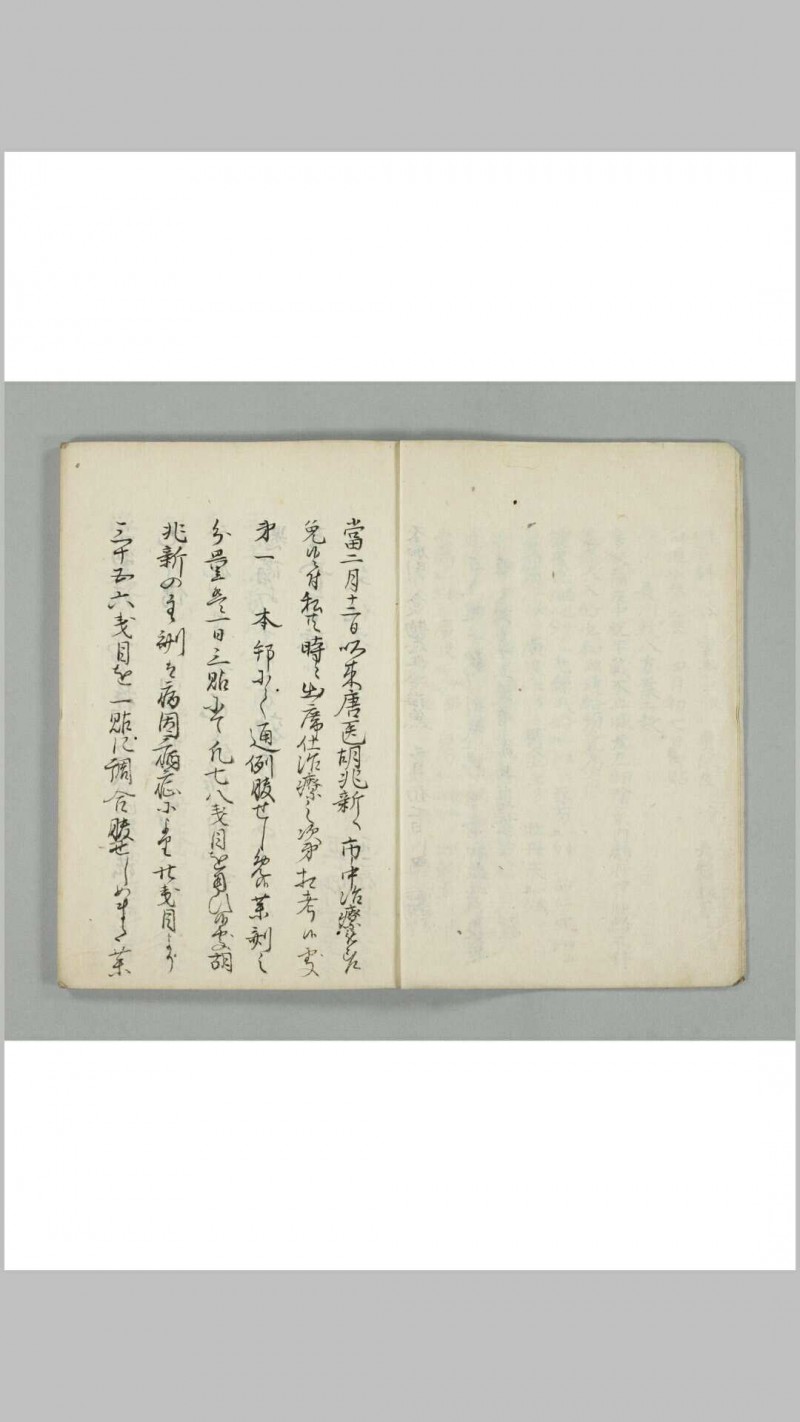 當二月十二日以来唐医胡兆新へ市中治療
免候付私共時々出席仕治療之次第相考候処
第一 本邦ニ而通例服せしめ候薬剤之
分量是一日三貼ニ而凡七八戔目を用ひ候処胡
兆新の主剤は病因病症ニより廿戔目より
三十五六戔目を一貼に調合服せしめ 薬